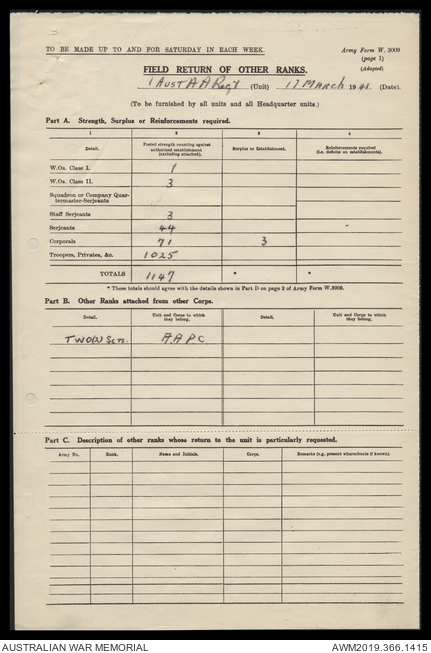 TO BE MADE UP TO AND FOR SATURDAY IN EACH WEEK.
Army Form W. 3009
(page 1)
(Adapted)
FIELD RETURN OF OTHER RANKS.
1 Aust A A Regt (Unit) 17 March 1941 (Date).
(To be furnished by all units and all Headquarter units.)
Part A. Strength, Surplus or Reinforcements required.
1 2 3 4
Detail. Posted strength counting against authorized establishment (excluding attached). Surplus to Establishment. Reinforcements required (i.e. deficits on establishments).
W.Os. Class I. 1
W.Os. Class II. 3
Squadron or Company Quar-
termaster-Serjeants
Staff Serjeants 3
Serjeants 44 -
Corporals 71 3
Troopers, Privates, &c. 1025
TOTALS 1147 * *
* These totals should agree with the details shown in Part D on page 2 of Army Form W.3009.
Part B. Other Ranks attached from other Corps.
Detail. Unit and Corps to which they belong. Detail. Unit and Corps to which they belong.
TWO W Sgts. A.A P C
Part C. Description of other ranks whose return to the unit is particularly requested.
Army No. Rank. Name and Initials. Corps. Remarks (e.g. present whereabouts if known).
AUSTRALIAN WAR MEMORIAL
AWM2019.366.1415